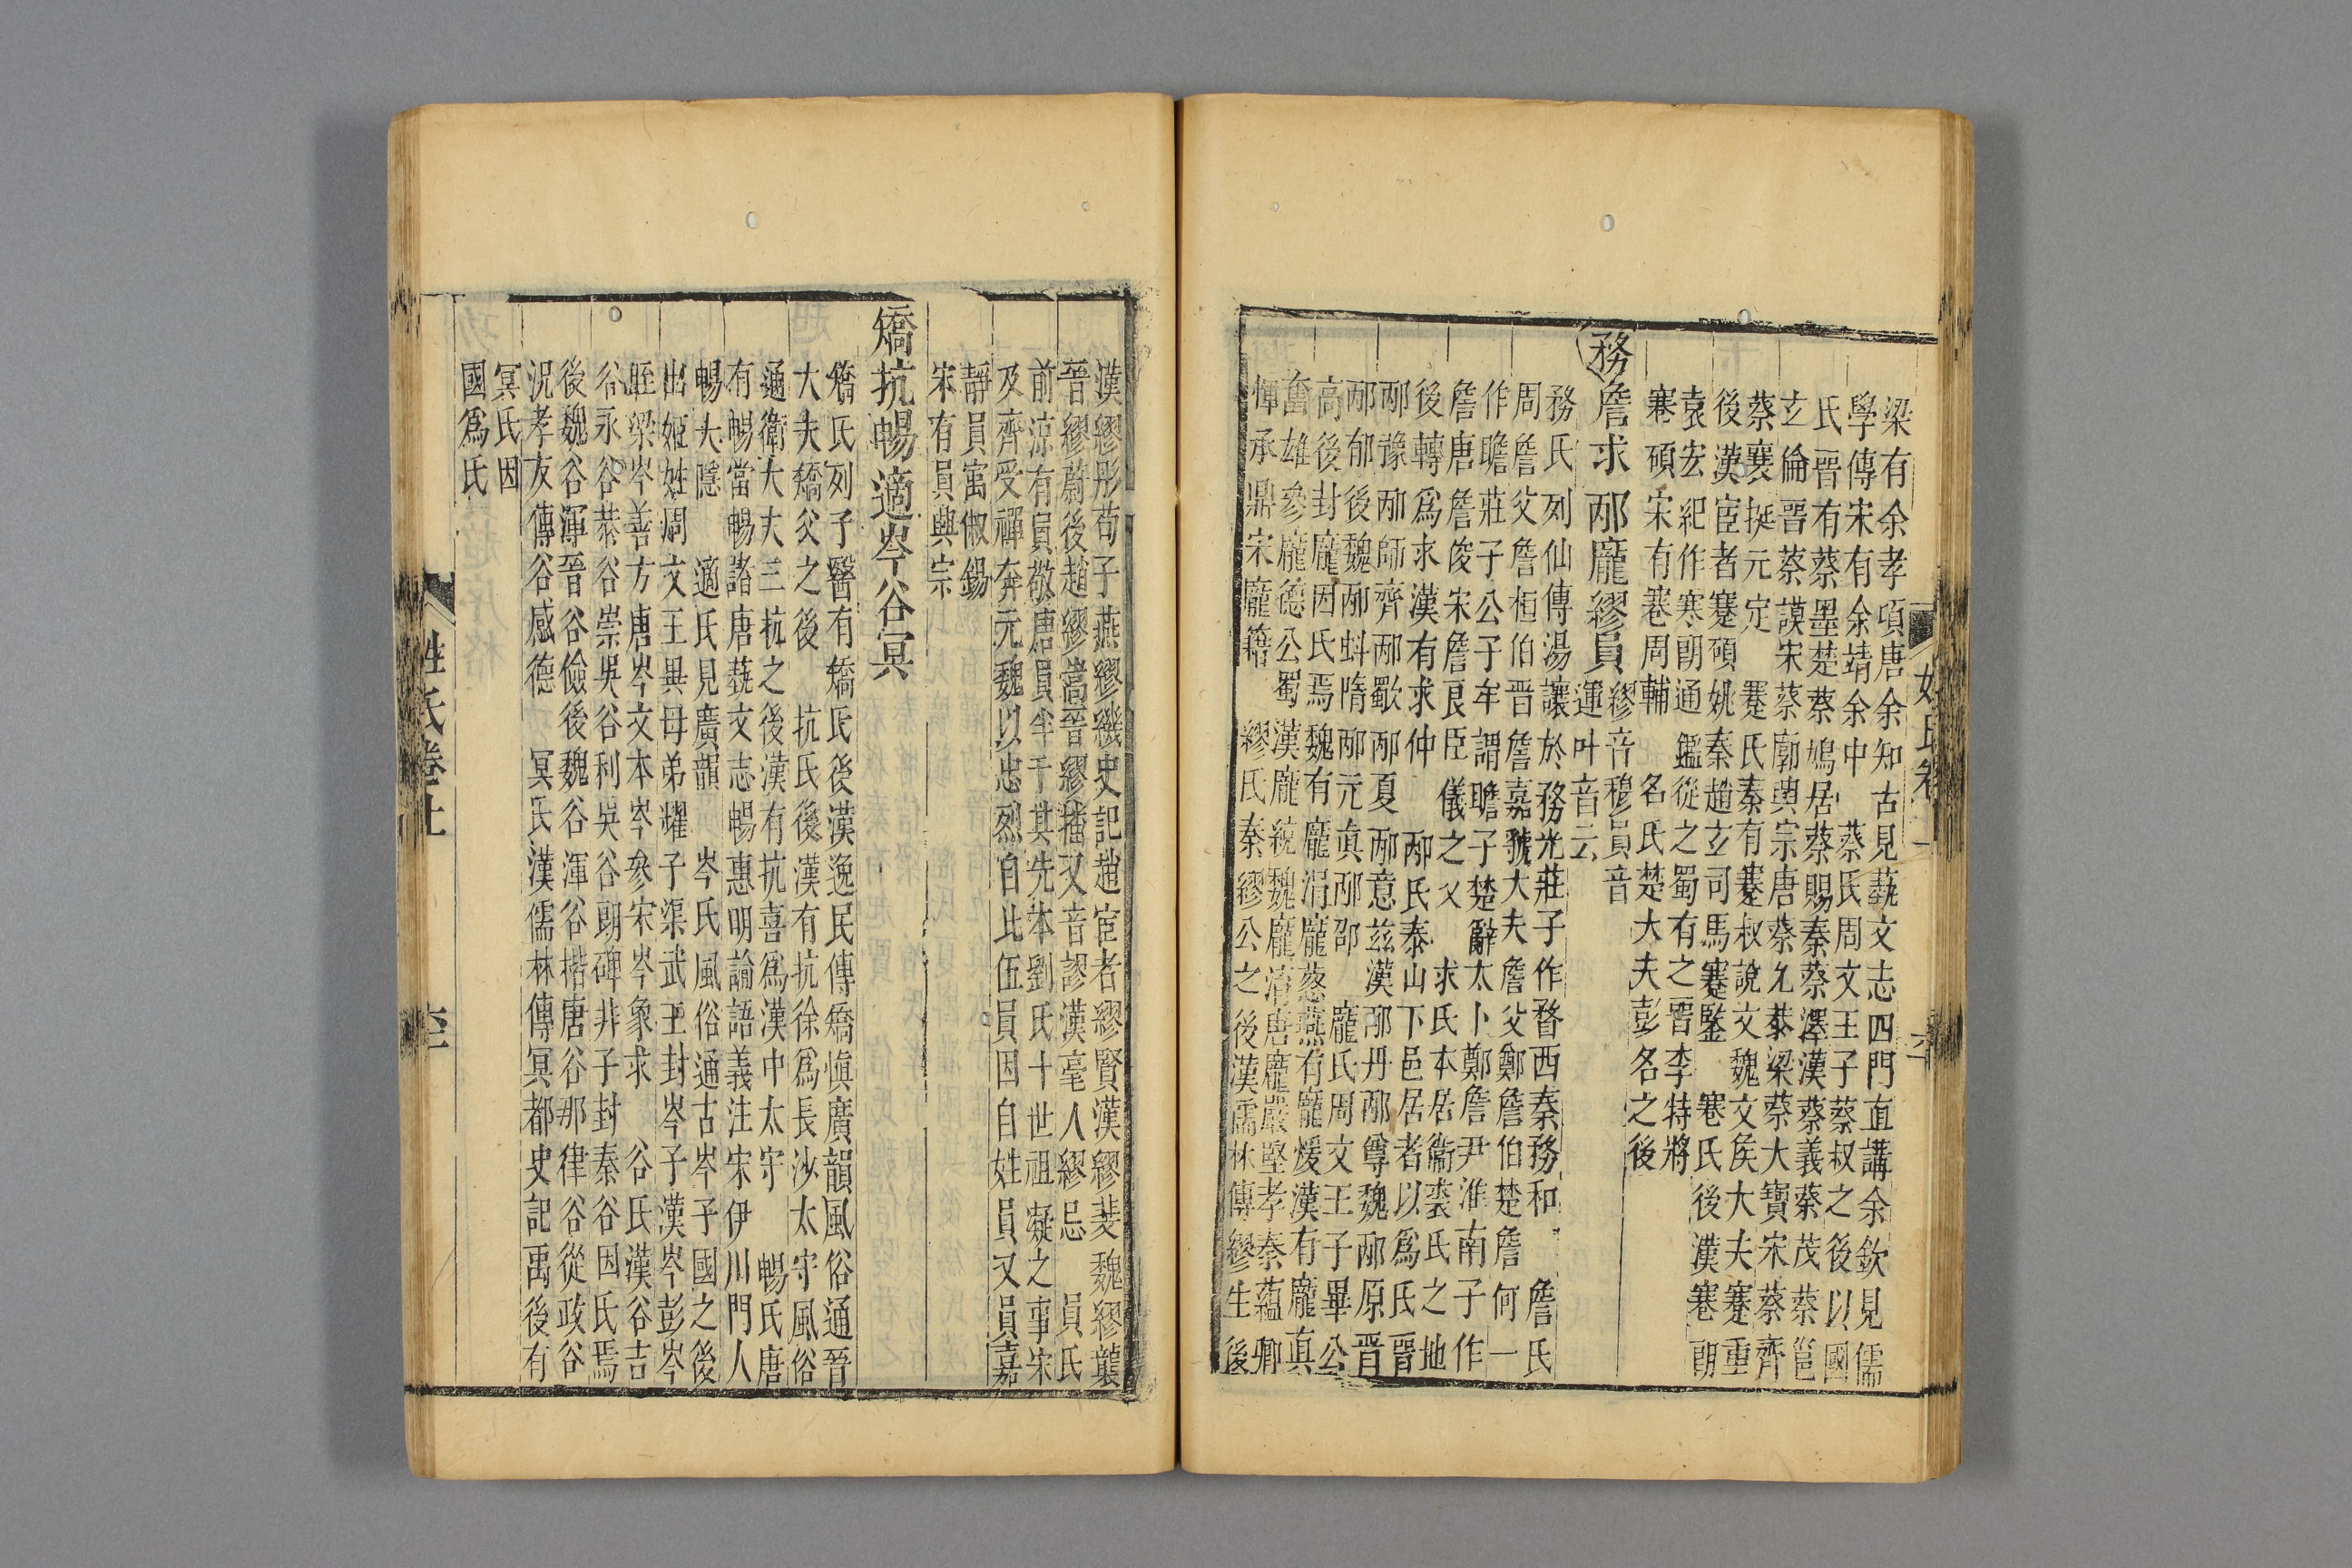 梁有余孝頃唐余知古見藝文志四門直講余欽見儒
學傳宋有余靖余中　蔡氏周文王子蔡叔之後以國
氏晉有蔡墨楚蔡鳩居蔡賜秦蔡澤漢蔡義蔡茂蔡邕
玄綸晉蔡謨宋蔡廓興宗唐蔡允恭梁蔡大寶宋蔡齊
蔡襄挺元定　蹇氏秦有蹇叔說文魏文侯大夫蹇重
後漢宦者蹇碩姚秦趙玄司馬蹇鑒　寋氏後漢寋朗
袁宏紀作寒朗通鑑從之蜀有之晉李特將
寋碩宋有寋周輔　名氏楚大夫彭名之後
務詹求邴龐繆員
繆音穆員音
運叶音云
務氏列仙傳湯讓於務光莊子作瞀西秦務和　詹氏
周詹父詹桓伯晉詹嘉號大夫詹父鄭詹伯楚詹何一
作瞻莊子公子牟謂瞻子楚辭太卜鄭詹尹淮南子作
詹唐詹俊宋詹良臣　儀之父　求氏本居衞裘氏之地
後轉爲求漢有求仲　邴氏泰山下邑居者以爲氏晉
邴豫邴師齊邴歜邴夏邴意茲漢邴丹邴尊魏邴原晉
邴郁後魏邴蚪隋邴元真邴邵　龐氏周文王子畢公
高後封龐因氏焉魏有龐涓龐葱燕有龐煖漢有龐真
奮雄參龐德公蜀漢龐統魏龐淯唐龐嚴堅孝泰蘊卿
惲承鼎宋龐籍　繆氏秦繆公之後漢儒林傳繆生後
漢繆彤荀子燕繆蟣史記趙宦者繆賢漢繆斐魏繆襲
晉繆蔚後趙繆嵩晉繆播又音謬漢亳人繆忌　員氏
前涼有員敬唐員半千其先本劉氏十世祖凝之事宋
及齊受禪奔元魏以忠烈自比伍員因自姓員又員嘉
靜員寓俶錫
宋有員興宗
矯抗暢適岑谷冥
矯氏列子醫有矯氏後漢逸民傳矯愼廣韻風俗通晉
大夫矯父之後　抗氏後漢有抗徐爲長沙太守風俗
通衛大夫三抗之後漢有抗喜爲漢中太守　暢氏唐
有暢當暢諸唐藝文志暢惠明論語義注宋伊川門人
暢大隱　適氏見廣韻　岑氏風俗通古岑子國之後
出姬姓周文王異母弟耀子渠武王封岑子漢岑彭岑
晊梁岑善方唐岑文本岑參宋岑象求　谷氏漢谷吉
谷永谷恭谷崇吳谷利吳谷朗碑非子封秦谷因氏焉
後魏谷渾晉谷儉後魏谷渾谷楷唐谷那律谷從政谷
況孝友傳谷感德　冥氏漢儒林傳冥都史記禹後有
冥氏因
國爲氏
姓氏卷上